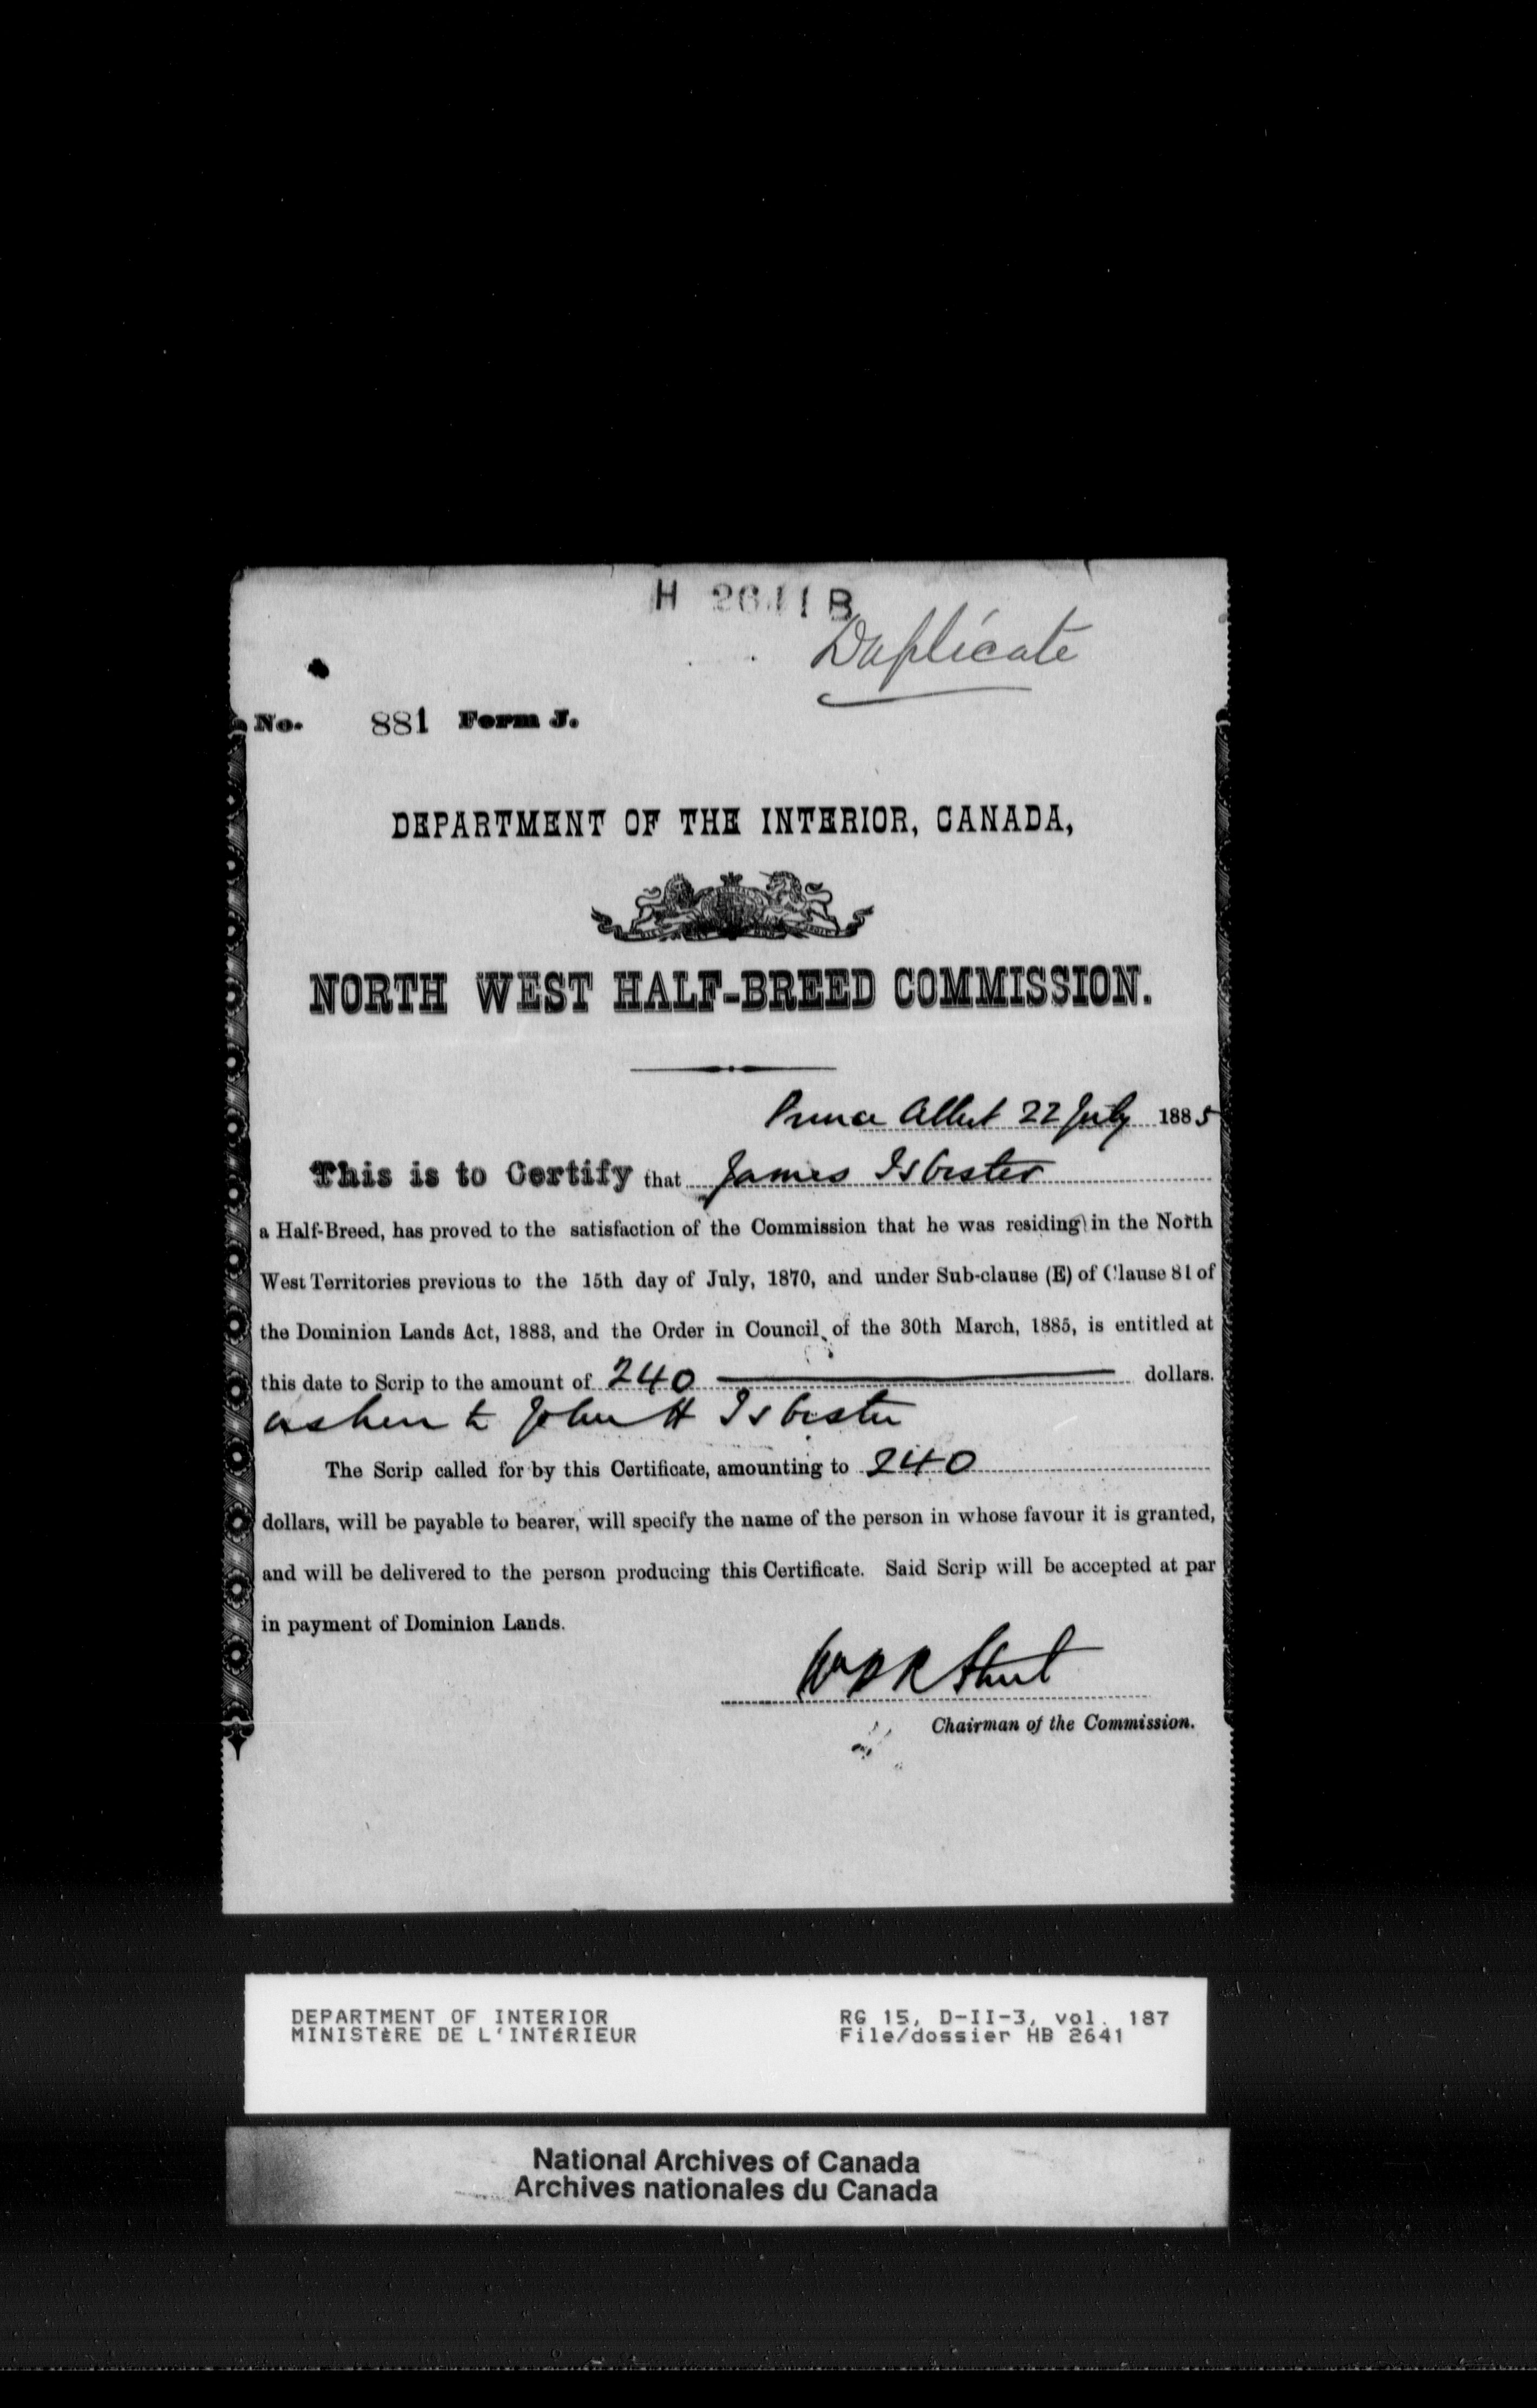 H 2641 B
Duplicate
No. 881 Form J.
DEPARTMENT OF THE INTERIOR, CANADA,
NORTH WEST HALF-BREED COMMISSION.
Prince Albert 22 July 1885
This is to Certify that James Isbester
a Half-Breed, has proved to the satisfaction of the Commission that he was residing in the North
West Territories previous to the 15th day of July, 1870, and under Sub-clause (E) of Clause 81 of
the Dominion Lands Act, 1883, and the Order in Council of the 30th March, 1885, is entitled at
this date to Scrip to the amount of 240 dollars.
as heir to John H Isbester
The Scrip called for by this Certificate, amounting to 240
dollars, will be payable to bearer, will specify the name of the person in whose favour it is granted,
and will be delivered to the person producing this Certificate. Said Scrip will be accepted at par
in payment of Dominion Lands.
Wm P R Street
Chairman of the Commission.
DEPARTMENT OF INTERIOR RG 15, D-II-3, vol. 187
MINISTÈRE DE L'INTÉRIEUR File/dossier HB 2641
National Archives of Canada
Archives nationales du Canada